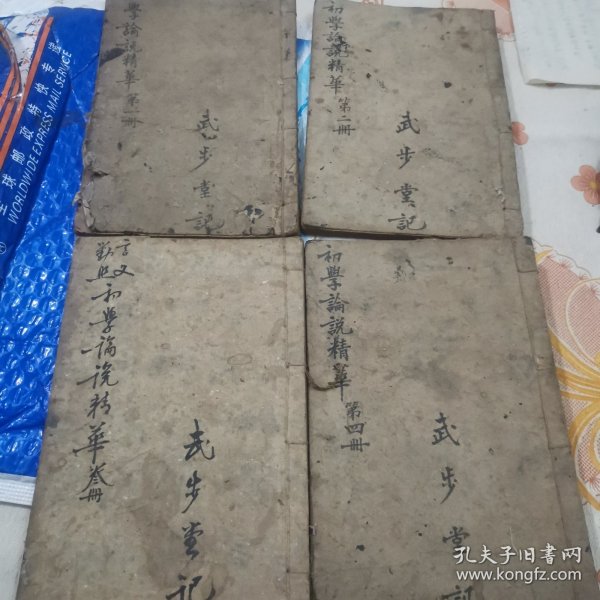 學論說精華第一冊
武步堂記
初學論說精華第二冊
武步堂記
言文對照初學論說精華叁冊
武步堂記
初學論說精華第四冊
武步堂記
全球邮政特快专递
WORLDWIDE EXPRESS MAIL SERVICE
孔夫子旧书网
www.kongfz.com